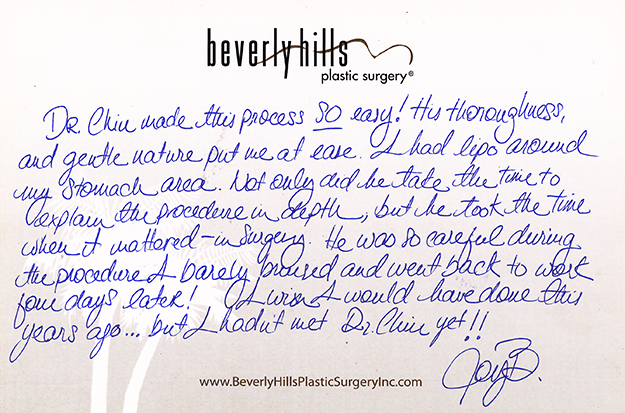 beverlyhills
plastic surgery®
Dr. Chiu made this process SO easy! His thoroughness,
and gentle nature put me at ease. I had lipo around
my stomach area. Not only did he take the time to
explain the procedure in depth, but he took the time
when it mattered - in surgery. He was so careful during
the procedure I barely bruised and went back to work
four days later! I wish I would have done this
years ago... but I hadn't met Dr. Chiu yet!!
B.
www.BeverlyHillsPlasticSurgeryInc.com